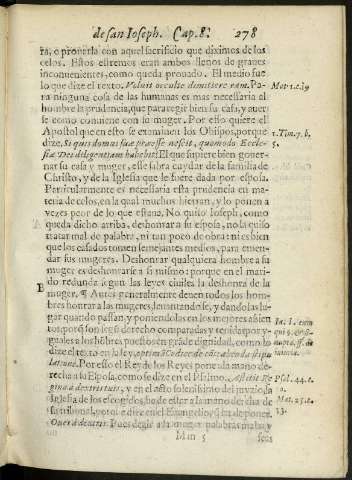 de san Ioseph. Cap. 8. 278
ra, o prouerla con aquel sacrificio que diximos de los
celos. Estos estremos eran ambos llenos de graues
inconuenientes, como queda prouado. El medio fue
lo que dize el texto. Voluit occulte dimittere eam. Pa-
ra ninguna cosa de las humanas es mas necessaria el
hombre la prudencia, que para regir bien su casa, y auer
se como conuiene con su muger. Por esso quiere el
Apostol que en esto se examinen los Obispos, porque
dize, Si quis domui suæ præesse nescit, quomodo Eccle-
siæ Dei diligentiam habebit? El que supiere bien gouer-
nar su casa y muger, esse sabra cuydar de la familia de
Christo, y de la Iglesia que le fuere dada por esposa.
Particularmente es necessaria esta prudencia en ma-
teria de celos, en la qual muchos hierran, y lo ponen a
vezes peor de lo que estaua. No quiso Ioseph, como
queda dicho arriba, deshonrar a su esposa, no la quiso
tratar mal de palabra, ni tan poco de obra: ni es bien
que los casados tomen semejantes medios, para emen-
dar sus mugeres. Deshonrar qualquiera hombre a su
muger es deshonrarse a si mismo: porque en el mari-
do redunda segun las leyes ciuiles la deshonra de la
muger. ¶ Antes generalmente deuen todos los hom-
bres honrar a las mugeres, leuantandose, y dandolas lu-
gar quando passan, y poniendolas en los mejores assien
tos, porq̃ son segũ derecho comparadas y tenidas por y-
guales a los hõbres puestos en grãde dignidad, como lo
dize el texto en la ley,
Por esso el Rey de los Reyes pone a la mano de-
recha a su Esposa, como se dize en el Psalmo. Astitit Re
gina a dextris tuis, y en el acto solenissimo del juyzio, la
Iglesia de los escogidos, ha de estar a la mano derecha de
su tribunal, porque dize en el Euangelio, q̃ ha de poner.
Oues a dextris. Pues dezir a la muger palabras malas, y
Mm 5 feas
Mat. 1. c. 19
1. Tim. 7. b.
5.
B
Psal. 44. c.
Mat. 25. c.
33.